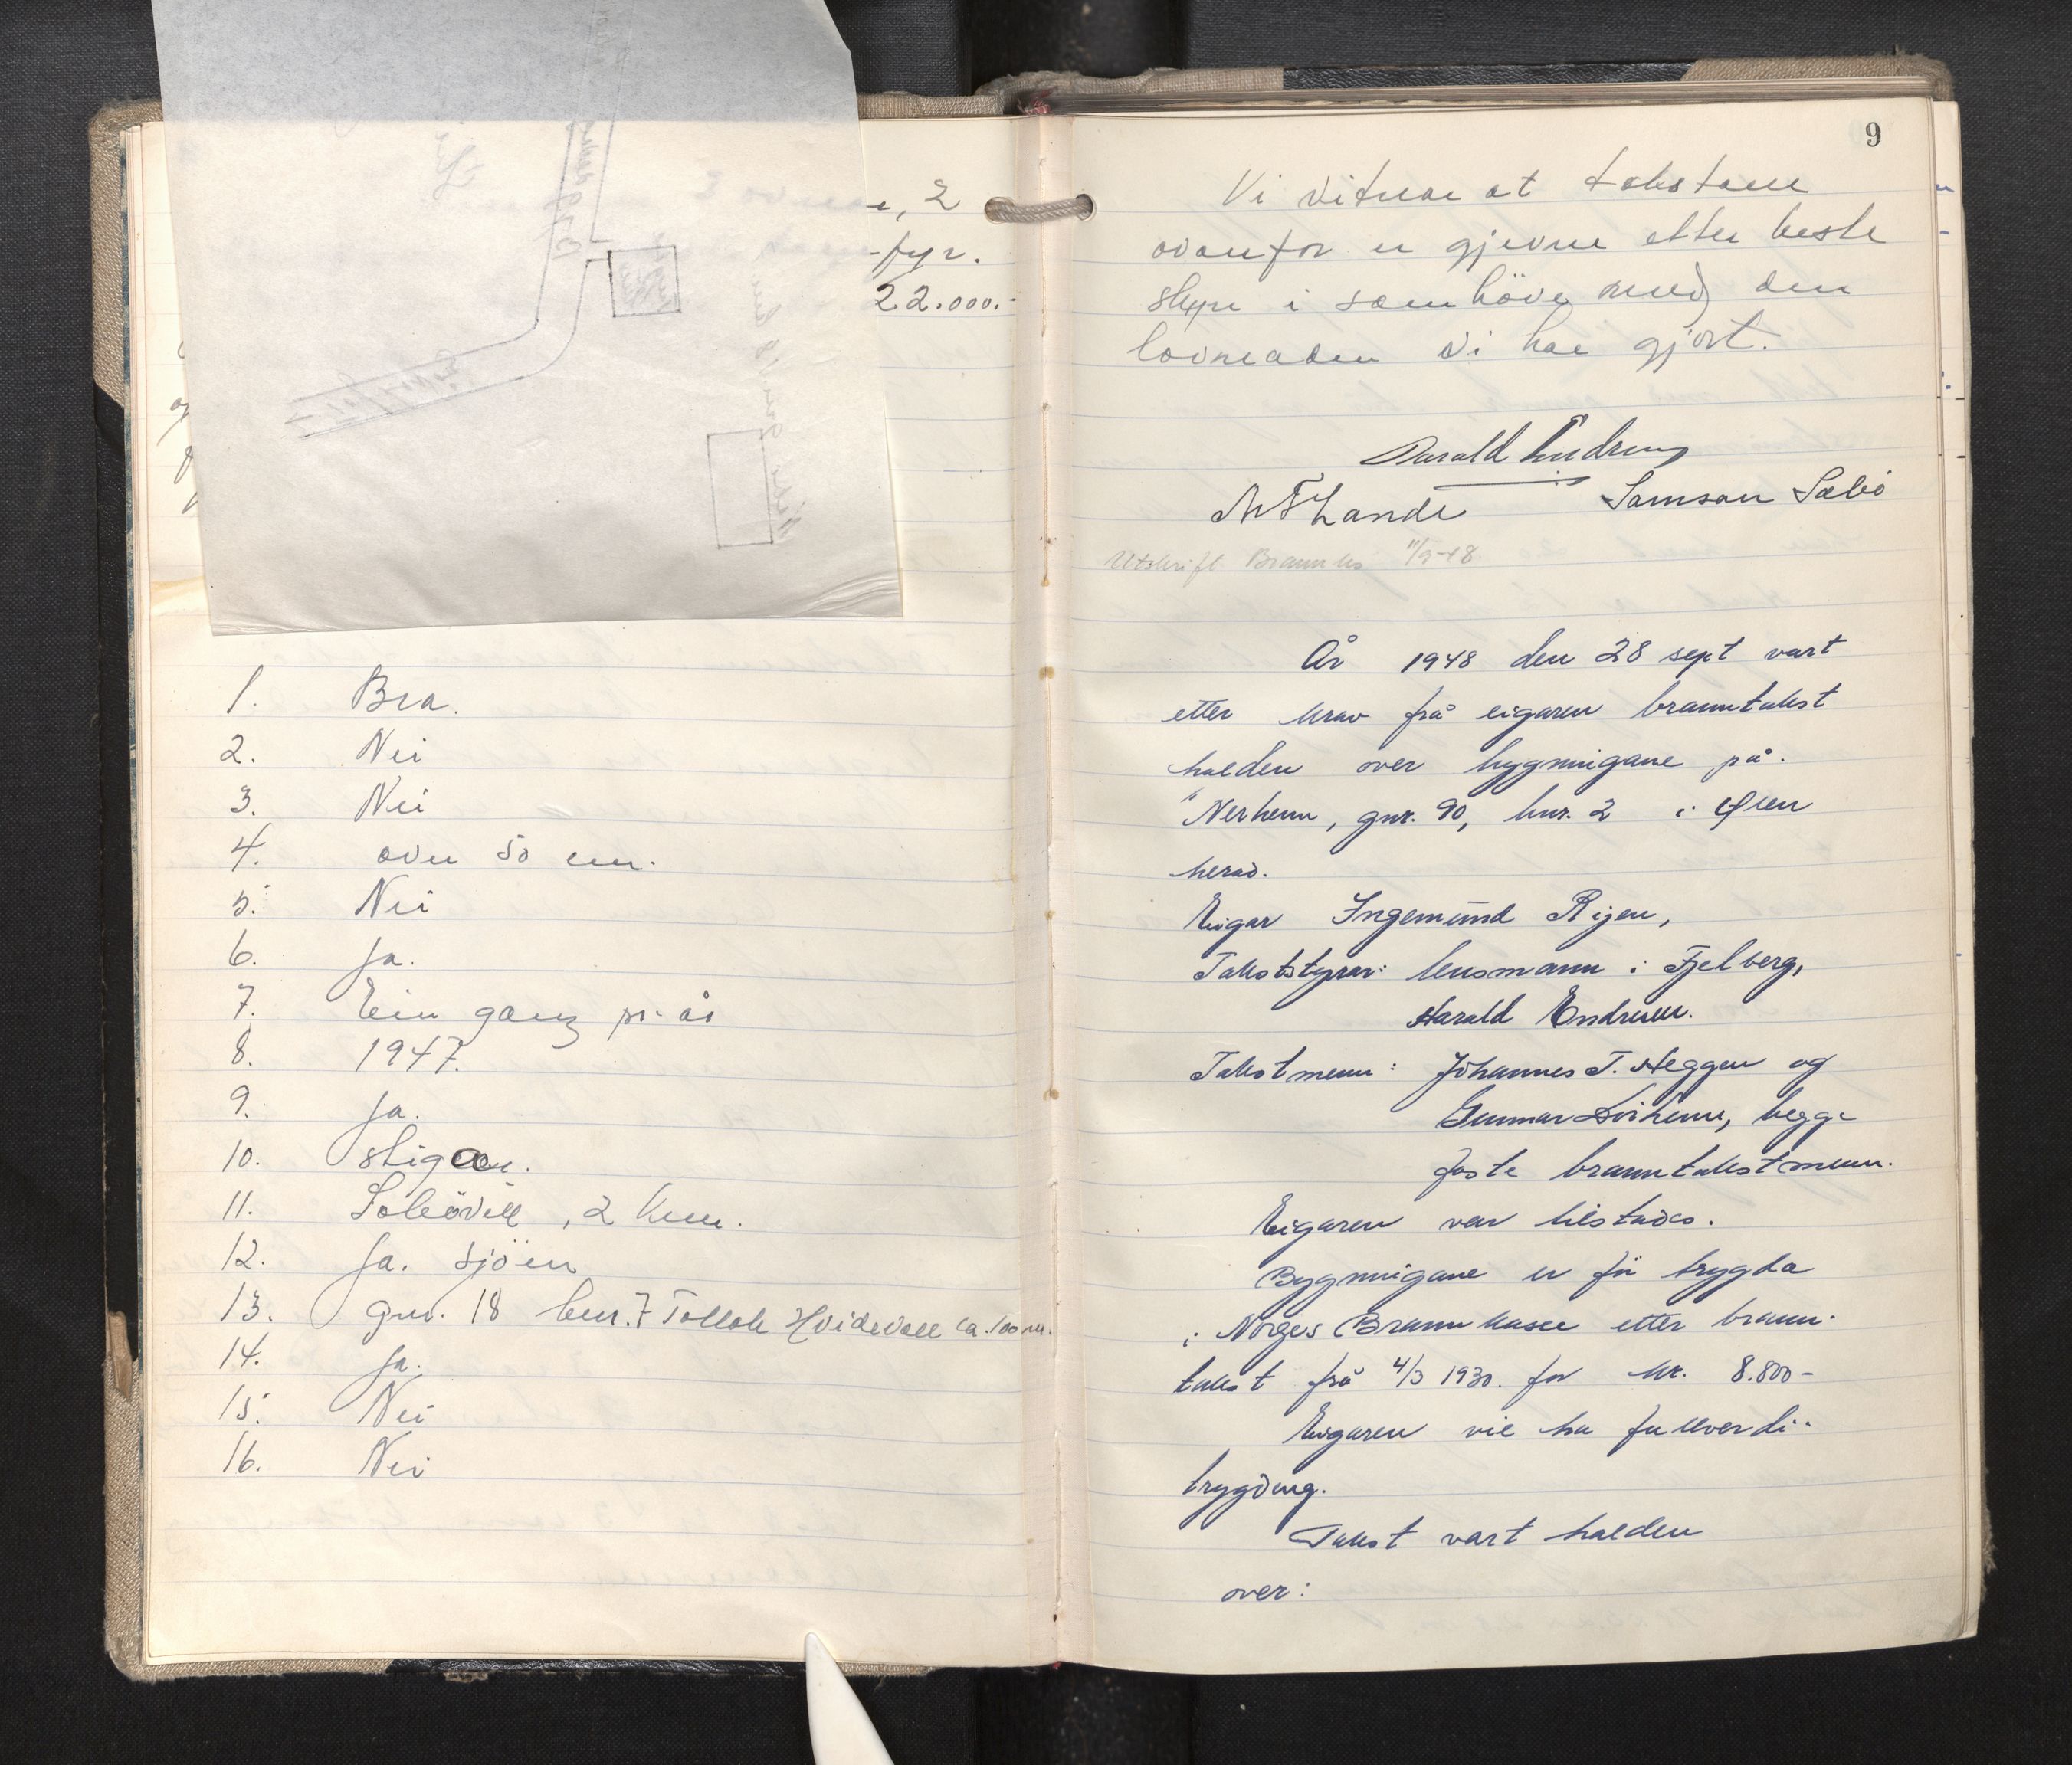 , 2
fyr.
22.000.-
1. Bra.
2. Nei
3. Nei
4. over 50 cm.
5. Nei
6. Ja.
7. Ein gang pr. år
8. 1947.
9. Ja.
10. stigar.
11. 2 km.
12. Ja. Sjöen
13. gnr. 18 bnr. 7 Tollak Hvidevoll ca. 100 m.
14. Ja.
15. Nei
16. Nei
9
Vi vitnar at takstane
ovanfor er gjevne etter beste
skyn i samhöve med den
lovnaden vi har gjort.
Harald Endresen
Lande Samson Sæbö
Utskrift Brannks 11/9-48
År 1948 den 28 sept vart
etter krav frå eigaren branntakst
halden over bygningane på
Nerheim, gnr. 90, bnr. 2 i Ølen
herad.
Eigar Ingemund
Takststyrar: lensmann i Fjelberg,
Harald Endresen.
Takstmenn: Johannes T. Heggen og
Gunnar begge
faste branntakstmenn.
Eigaren var tilstades.
Bygningane er før trygda
i Norges Brannkasse etter brann-
takst frå 4/3 1930. for kr. 8.800-
Eigaren vil ha fullverdi-
trygding.
Takst vart halden
over: